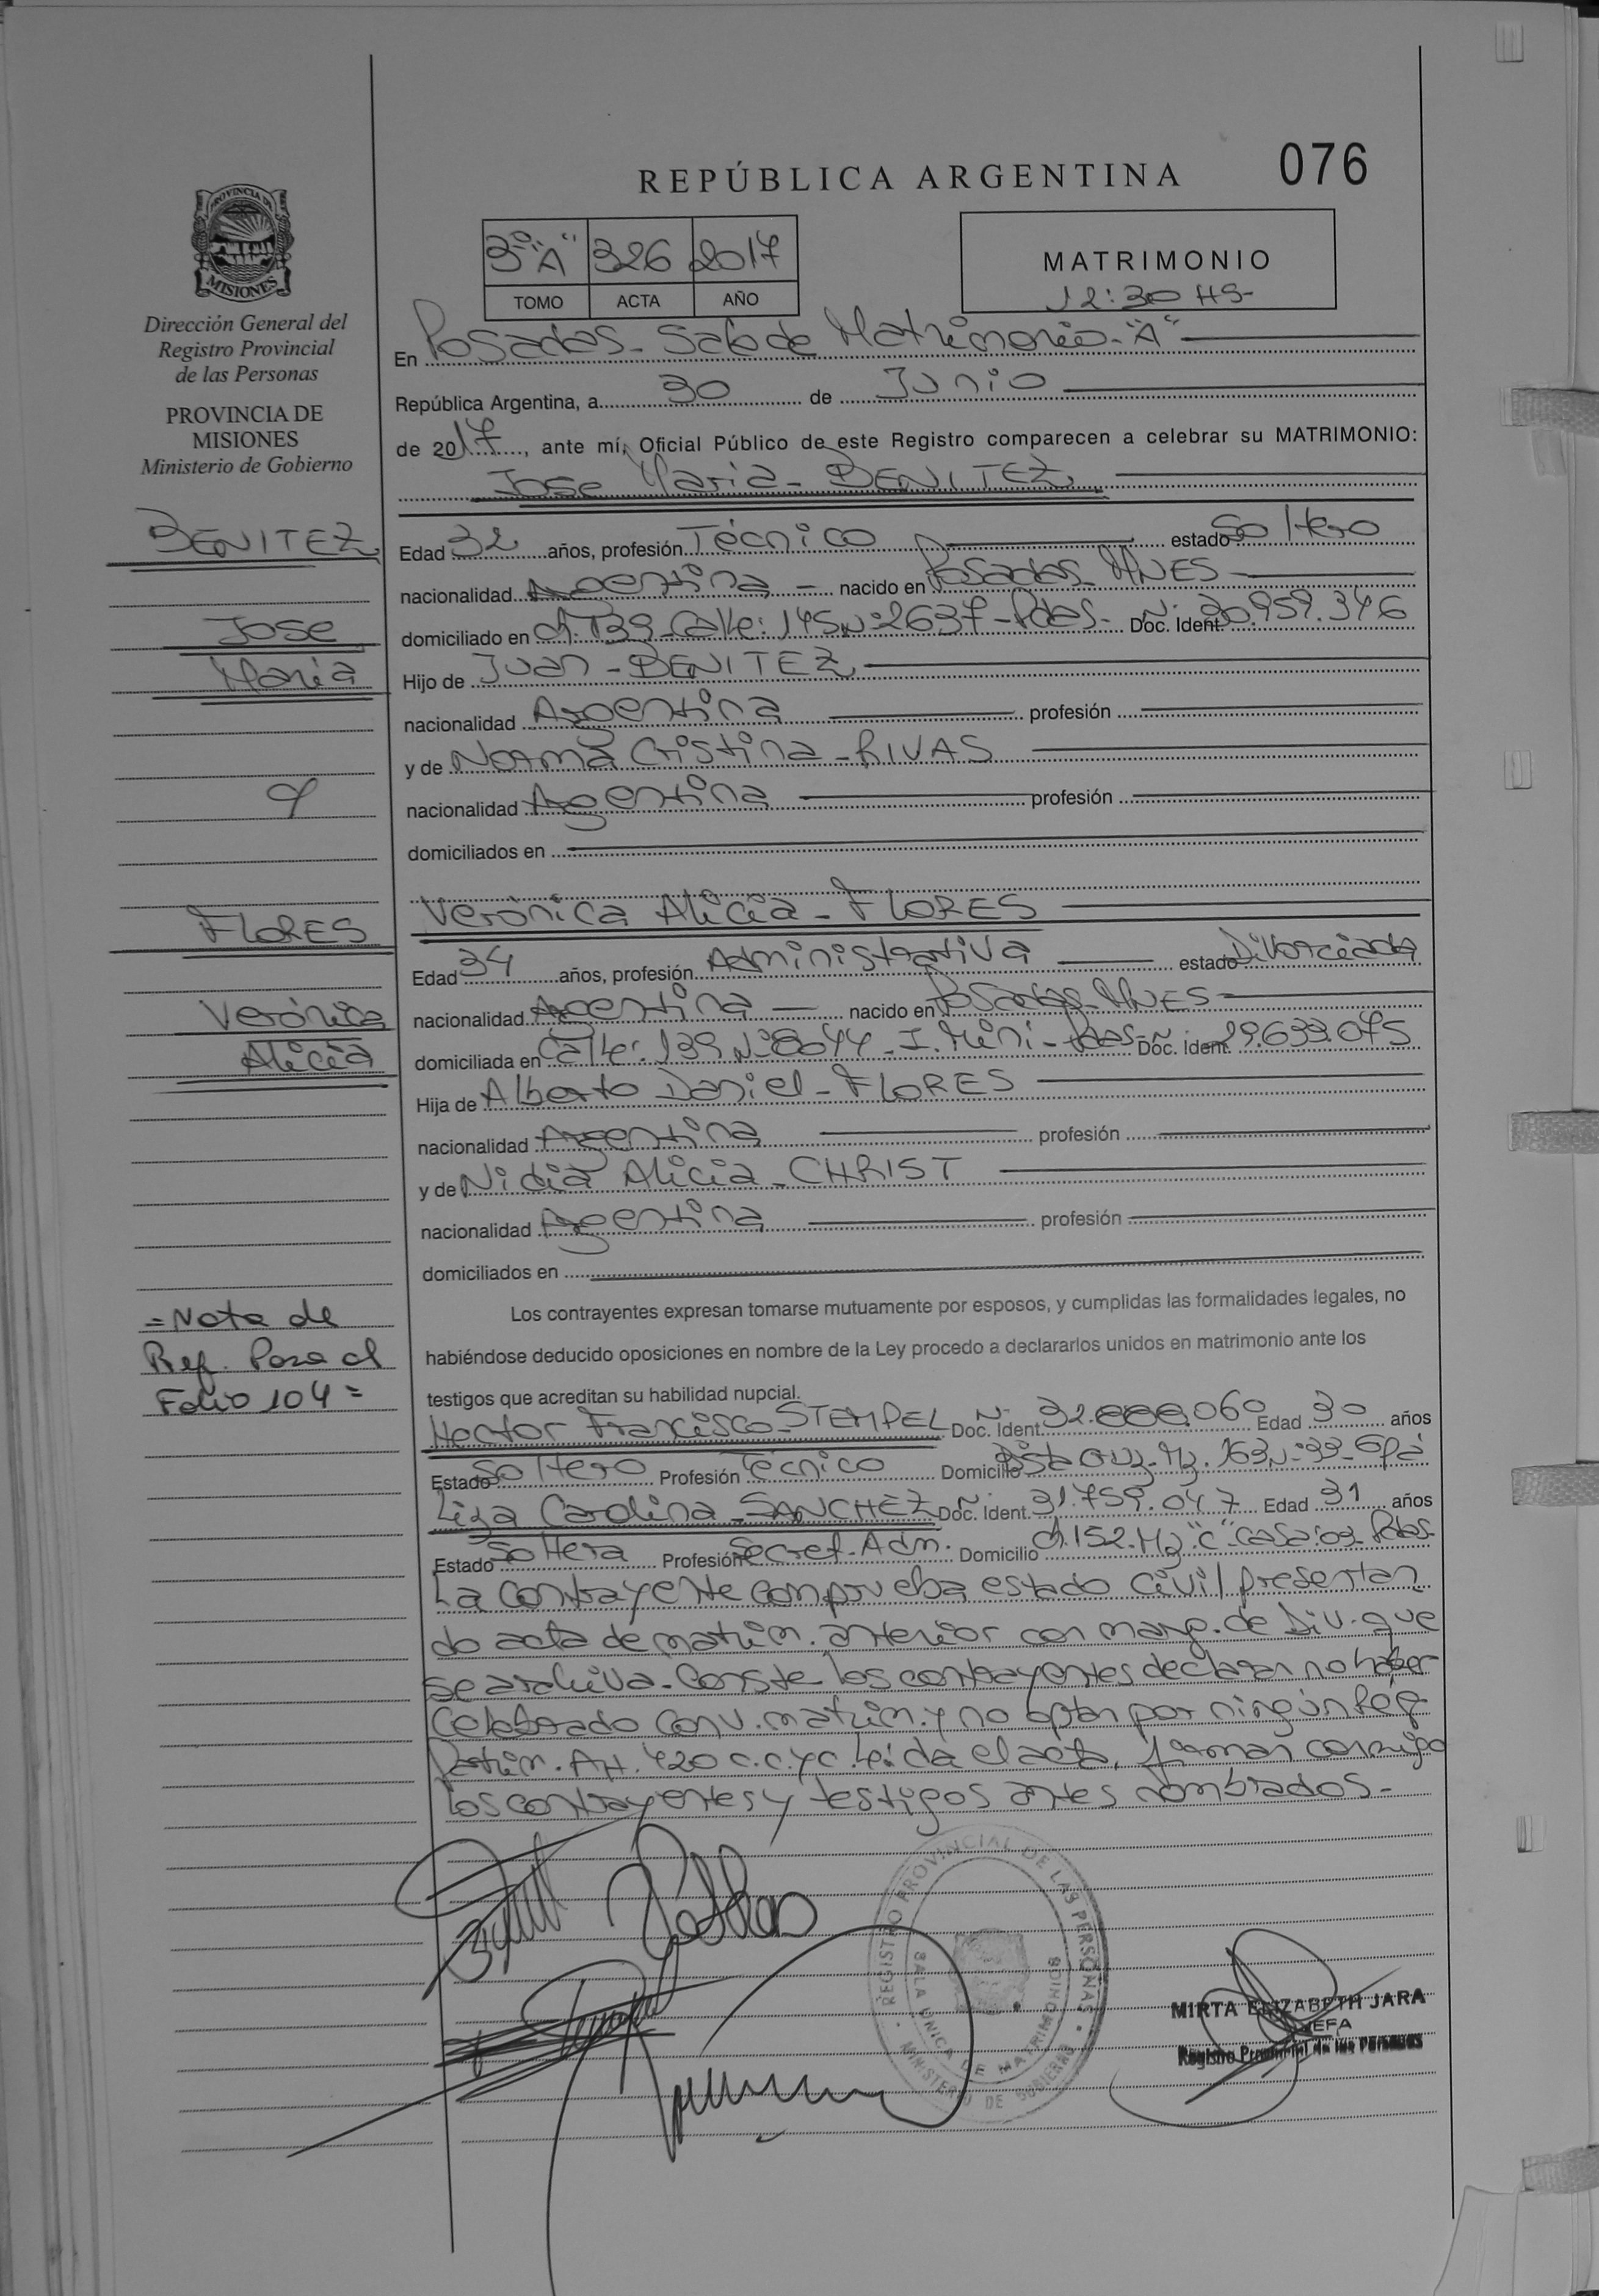 REPÚBLICA ARGENTINA 076
PROVINCIA DE
MISIONES
Dirección General del
Registro Provincial
de las Personas
PROVINCIA DE
MISIONES
Ministerio de Gobierno
3º "A" 326 2017
TOMO ACTA AÑO
MATRIMONIO
12:30 HS-
En Posadas - Sala de Matrimonio - "A"
República Argentina, a 30 de Junio
de 2017, ante mí, Oficial Público de este Registro comparecen a celebrar su MATRIMONIO:
Jose Maria - BENITEZ
BENITEZ
Jose
Maria
y
FLORES
Verónica
Alicia
Edad 32 años, profesión Técnico estado Soltero
nacionalidad Argentina - nacido en Posadas - MNES -
domiciliado en Ch. 139 - Calle: 145 Nº 2637 - Pdas - Doc. Ident. Nº 30.959.346
Hijo de Juan - BENITEZ
nacionalidad Argentina profesión
y de Norma Cristina - RIVAS
nacionalidad Argentina profesión
domiciliados en
Verónica Alicia - FLORES
Edad 34 años, profesión Administrativa estado Divorciada
nacionalidad Argentina - nacido en Posadas - MNES -
domiciliada en Calle: 139 Nº 8044 - I. Miní - Pdas - Doc. Ident. Nº 29.633.075
Hija de Alberto Daniel - FLORES
nacionalidad Argentina profesión
y de Nidia Alicia - CHRIST
nacionalidad Argentina profesión
domiciliados en
Los contrayentes expresan tomarse mutuamente por esposos, y cumplidas las formalidades legales, no
habiéndose deducido oposiciones en nombre de la Ley procedo a declararlos unidos en matrimonio ante los
testigos que acreditan su habilidad nupcial.
= Nota de
Ref. Pasa al
Folio 104 =
Hector Francisco - STEMPEL Doc. Ident. Nº 32. 060 Edad 30 años
Estado Soltero Profesión Técnico Domicilio Mz. 163 Nº 33 - Gpá
Liza Carolina - SANCHEZ Doc. Ident. Nº 31.759.047 Edad 31 años
Estado Soltera Profesión Secret. Adm. Domicilio Ch. 152. Mz "C" Casa: 09 - Pdas -
La contrayente comprueba estado civil presentan
do acta de matrim. anterior con marg. de Div. que
se archiva. Conste los contrayentes declaran no haber
celebrado conv. matrim. y no optan por ningún Rég.
Patrim. Art. 420 C.C.yC. Leída el acta, firman conmigo
los contrayentes y testigos antes nombrados -
REGISTRO PROVINCIAL DE LAS PERSONAS
SALA UNICA DE MATRIMONIOS
MINISTERIO DE GOBIERNO
MIRTA ELIZABETH JARA
JEFA
Registro Provincial de las Personas